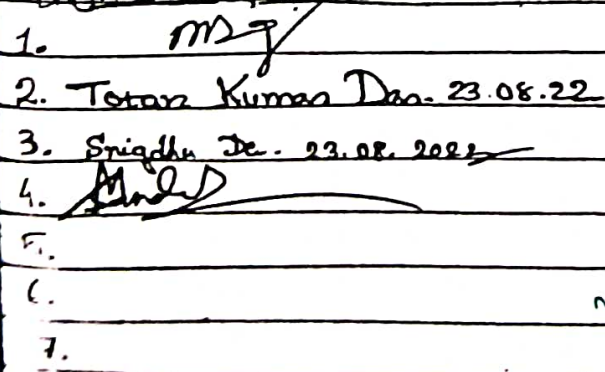 1.
2. Totan Kumar Das. 23.08.22
3. Snigdha De. 23.08.2022
4.
5.
6.
7.